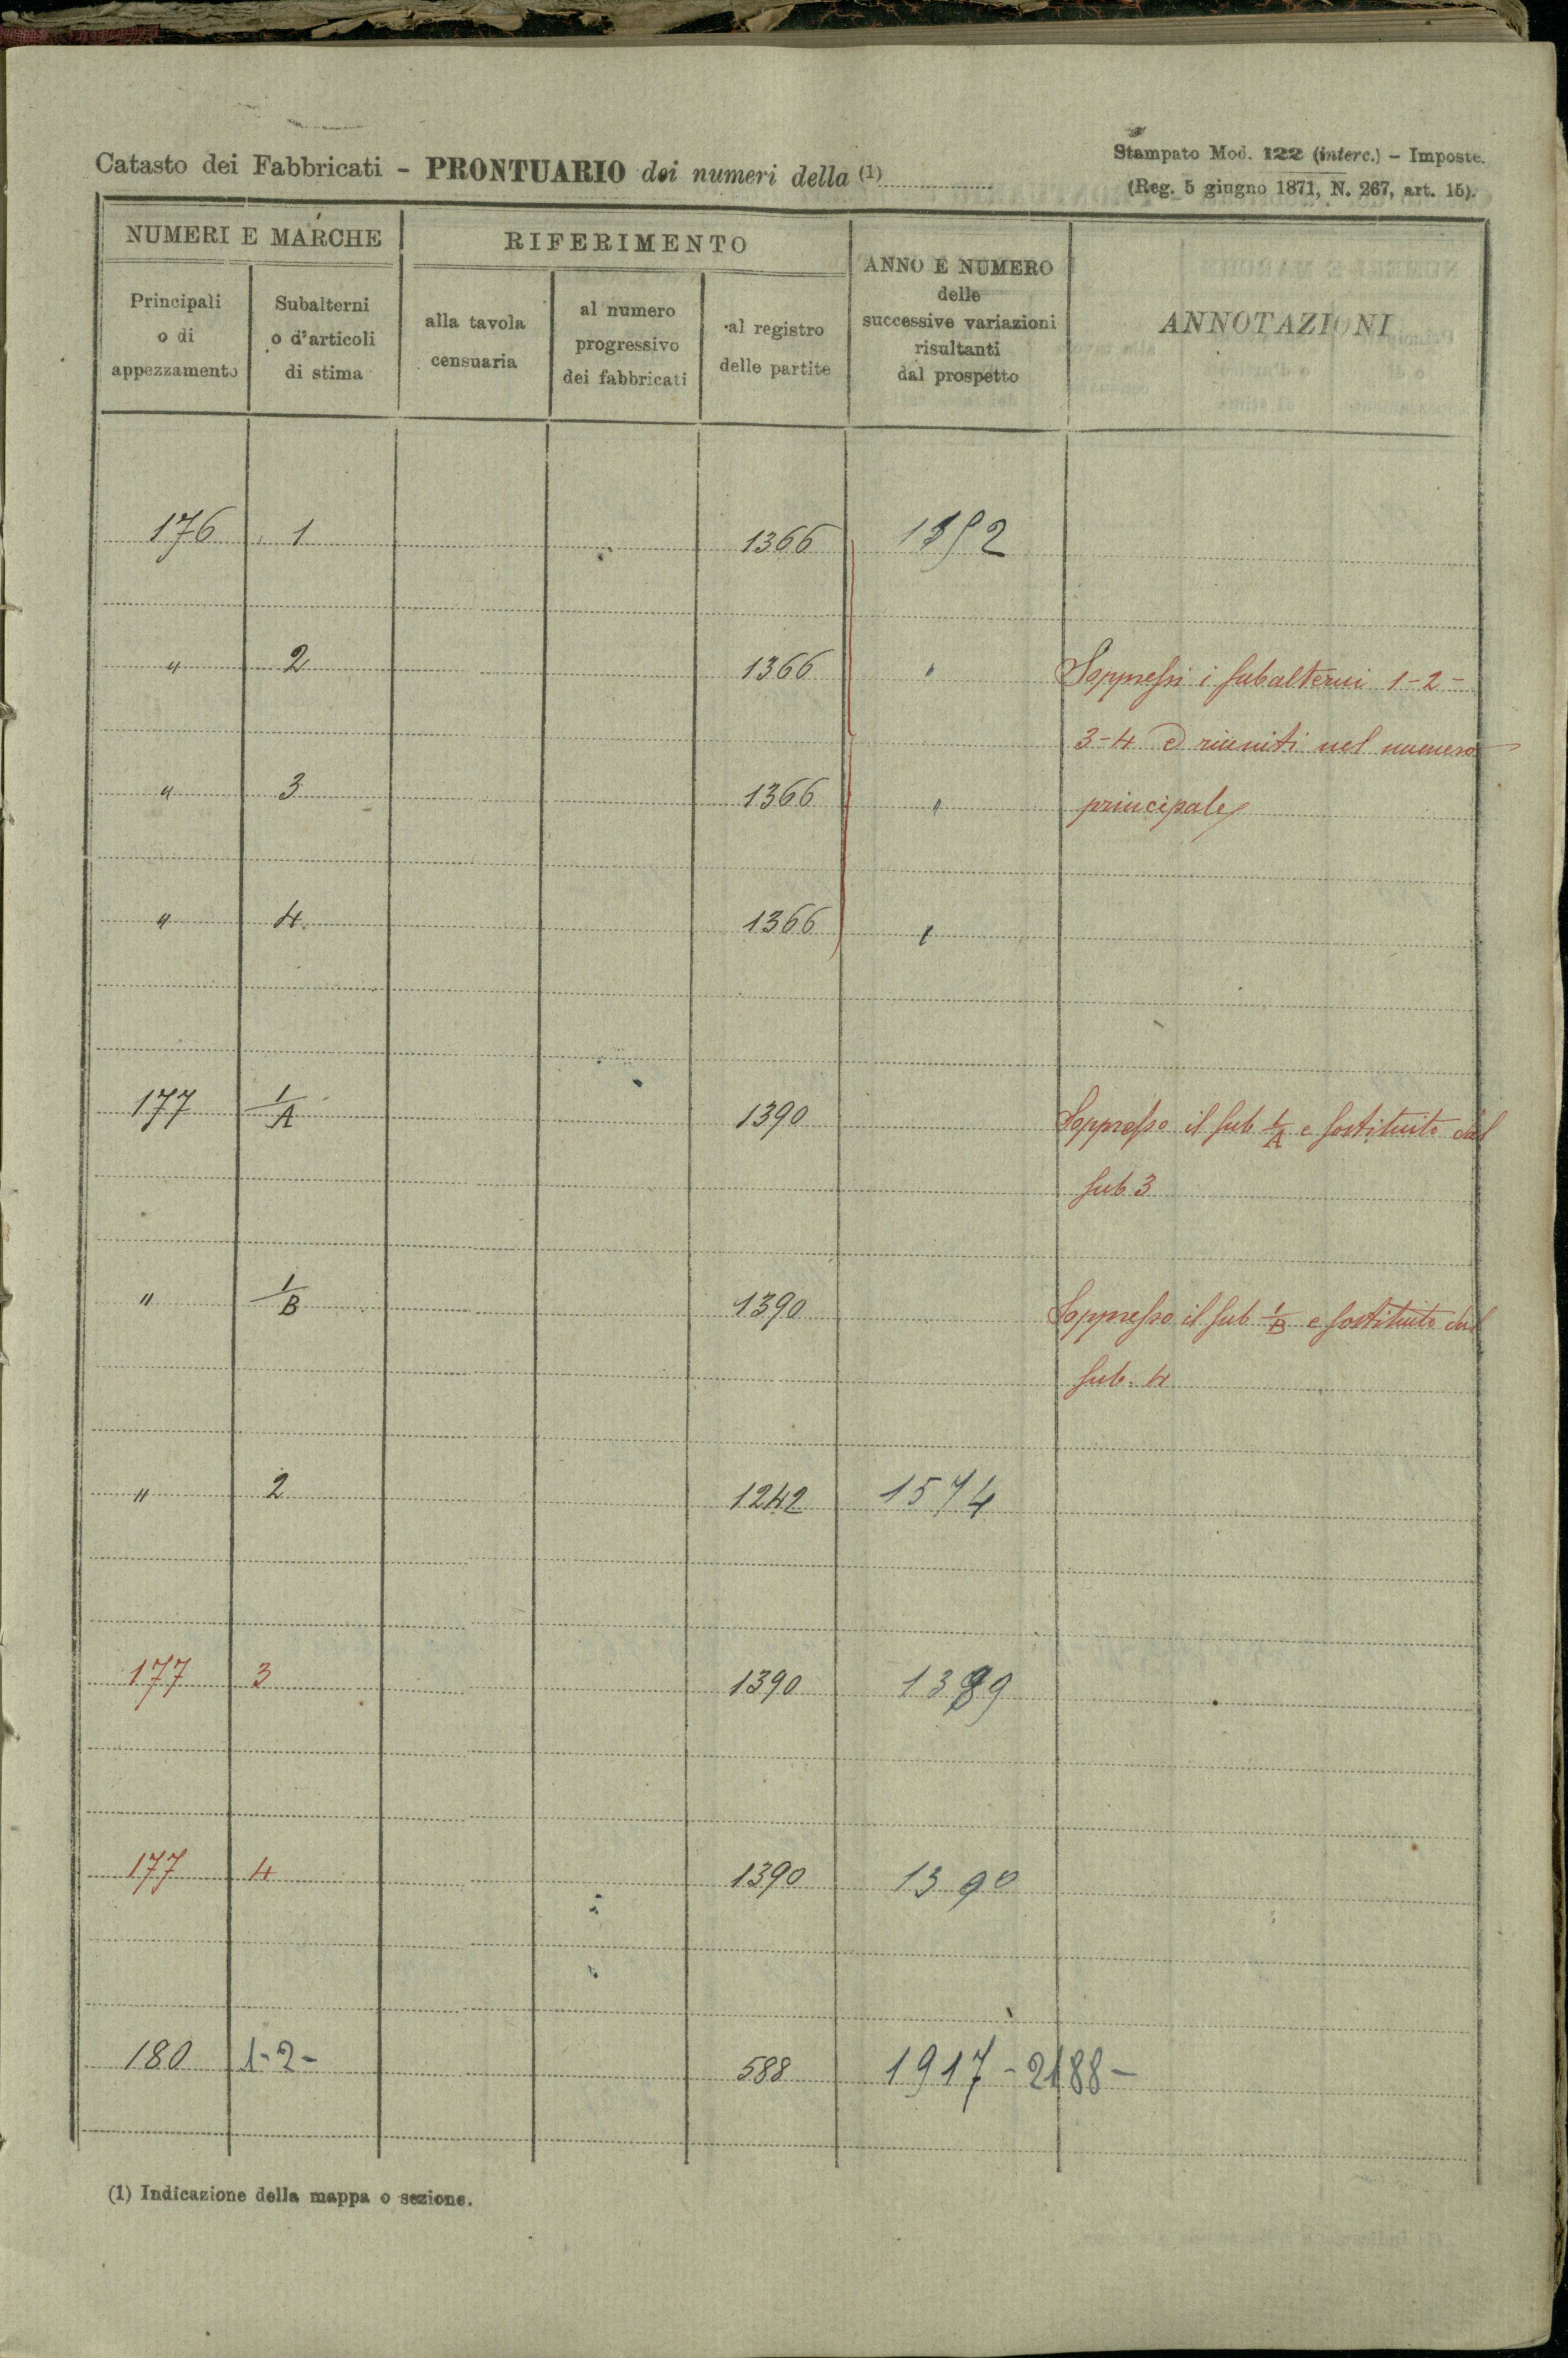 Catasto dei Fabbricati - PRONTUARIO dei numeri della (1)
Stampato Mod. 122 (interc.) - Imposte.
(Reg. 5 giugno 1871, N. 267, art. 15).
NUMERI E MARCHE
RIFERIMENTO
ANNO E NUMERO
delle
successive variazioni
risultanti
dal prospetto
ANNOTAZIONI
Principali
o di
appezzamento
Subalterni
o d'articoli
di stima
alla tavola
censuaria
al numero
progressivo
dei fabbricati
al registro
delle partite
176 1 1366
" 2 1366 " Soppressi i subalterni 1-2-
3-4 e riuniti nel numero
" 3 1366 " principale
" 4 1366 "
177 1/A 1390 Soppresso il sub 1/A e sostituito dal
sub 3
" 1/B 1390 Soppresso il sub 1/B e sostituito dal
sub. 4
" 2 1242 1574
177 3 1390 1389
177 4 1390 1390
180 1-2- 588 1917-2188-
(1) Indicazione della mappa o sezione.